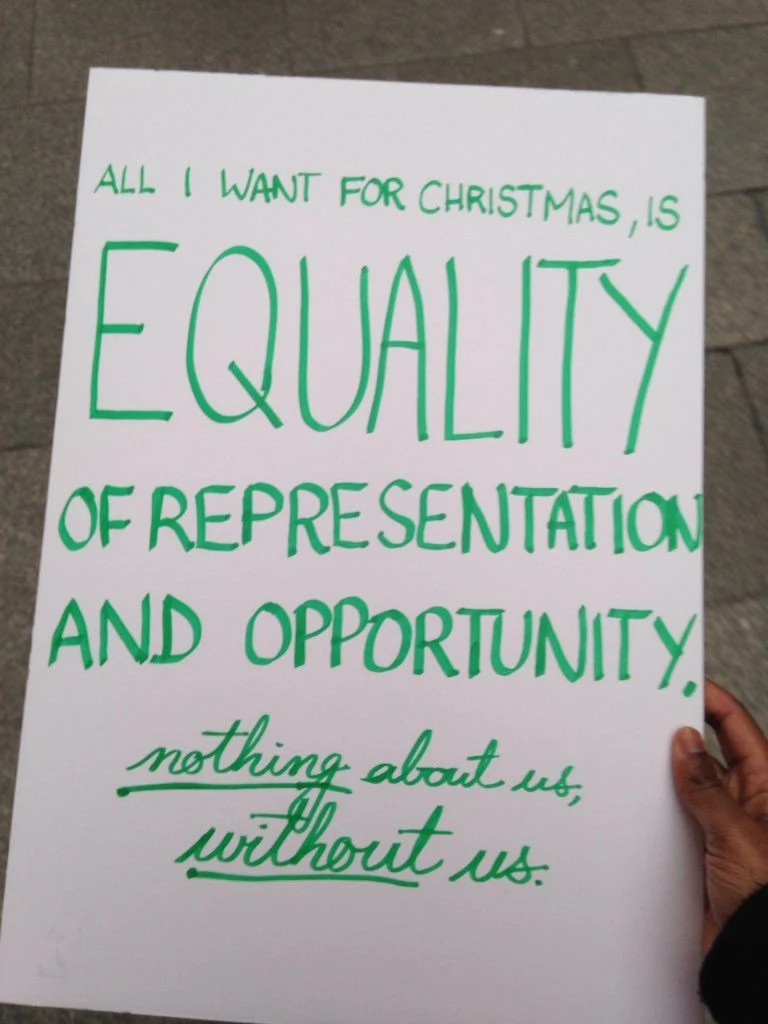 ALL I WANT FOR CHRISTMAS, IS
EQUALITY
OF REPRESENTATION
AND OPPORTUNITY.
nothing about us,
without us.